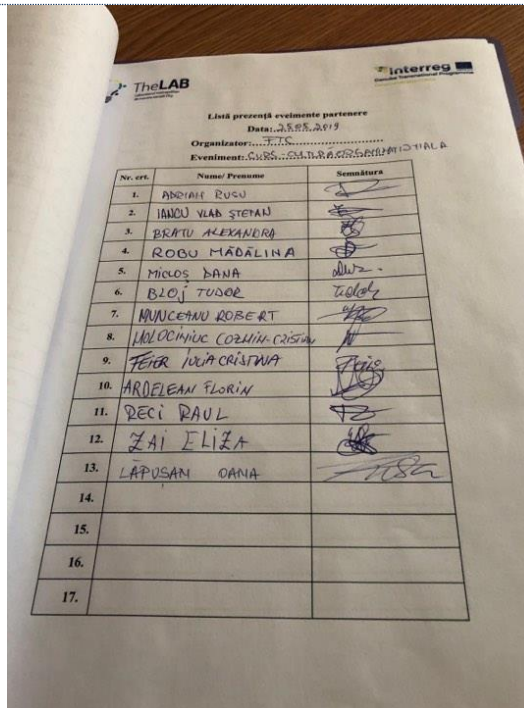 TheLAB
Interreg
Danube Transnational Programme
Listă prezență eveimente partenere
Data: 25.05.2019
Organizator: FTC
Eveniment: CURS CULTURĂ ORGANIZAȚIONALA
Nr. crt. Nume/ Prenume Semnătura
1. ADRIAN RUSU
2. IANCU VLAD ȘTEFAN
3. BRATU ALEXANDRA
4. ROBU MĂDĂLINA
5. MICLOȘ DANA
6. BLOJ TUDOR Tudor
7. MUNCEANU ROBERT
8. HOLOCINIUC COZMIN-CRISTIAN
9. FEIER IULIA CRISTINA
10. ARDELEAN FLORIN
11. RECI RAUL
12. ZAI ELIZA
13. LĂPUȘAN OANA
14.
15.
16.
17.